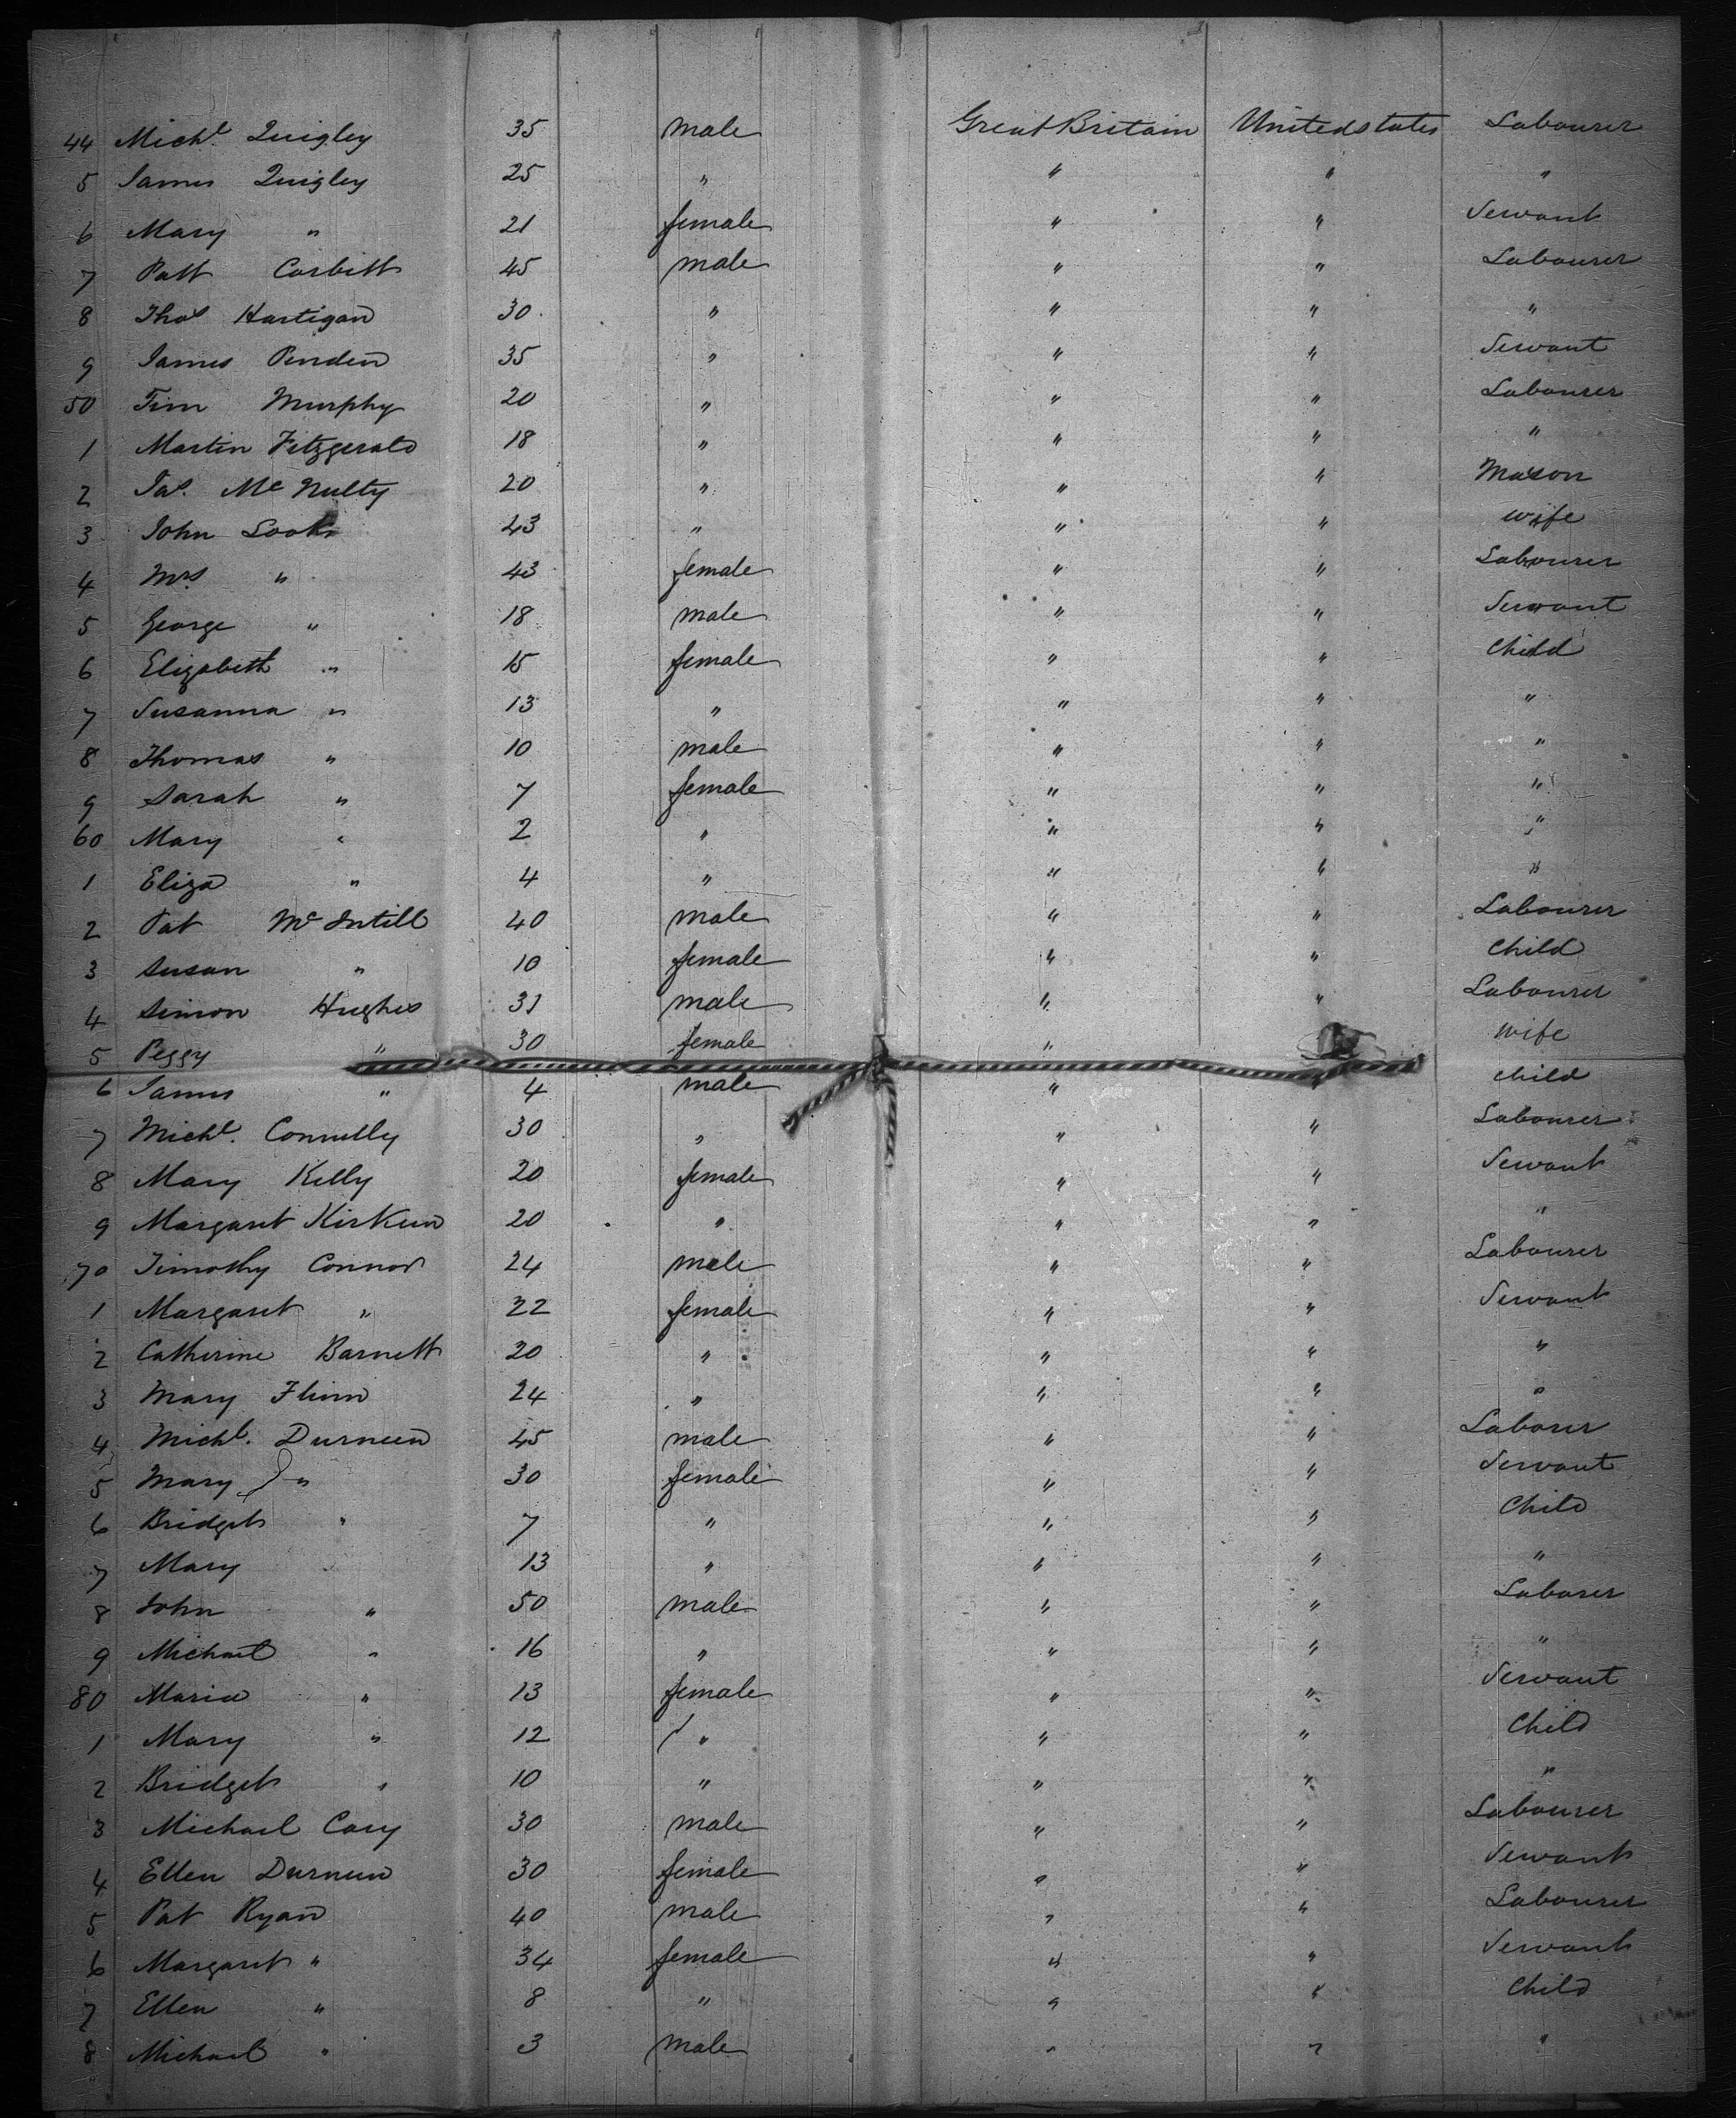 44 Michl. Quigley 35 male Great Britain United states Labourer
5 James Quigley 25 " " " "
6 Mary " 21 female " " Servant
7 Patt Corbitt 45 male " " Labourer
8 Thos Hartigan 30 " " " "
9 James Pinden 35 " " " Servant
50 Tim Murphy 20 " " " Labourer
1 Martin Fitzgerald 18 " " " "
2 Jas. Mc Nulty 20 " " " Mason
3 John Look 43 " " " wife
4 Mrs " 43 female " " Labourer
5 George " 18 male " " Servant
6 Elizabeth " 15 female " " Child
7 Susanna " 13 " " " "
8 Thomas " 10 male " " "
9 Sarah " 7 female " " "
60 Mary " 2 " " " "
1 Eliza " 4 " " " "
2 Pat Mc Intill 40 male " " Labourer
3 Susan " 10 female " " Child
4 Simon Hughes 31 male " " Labourer
5 Peggy " 30 female " wife
6 James " 4 male " " child
7 Michl. Connelly 30 " " " Labourer
8 Mary Kelly 20 female " " Servant
9 Margaret Kirkeen 20 " " " "
70 Timothy Connor 24 male " " Labourer
1 Margaret " 22 female " " Servant
2 Catherine Barnett 20 " " " "
3 Mary Flinn 24 " " " "
4 Michl. Durneen 45 male " " Laborer
5 Mary " 30 female " " Servant
6 Bridget " 7 " " " Child
7 Mary 13 " " " "
8 John " 50 male " " Laborer
9 Michael " 16 " " " "
80 Maria " 13 female " " Servant
1 Mary " 12 " " " Child
2 Bridget " 10 " " " "
3 Michael Cary 30 male " " Labourer
4 Ellen Durneen 30 female " " Servant
5 Pat Ryan 40 male " " Labourer
6 Margaret " 34 female " " Servant
7 Ellen " 8 " " " Child
8 Michael " 3 male " " "